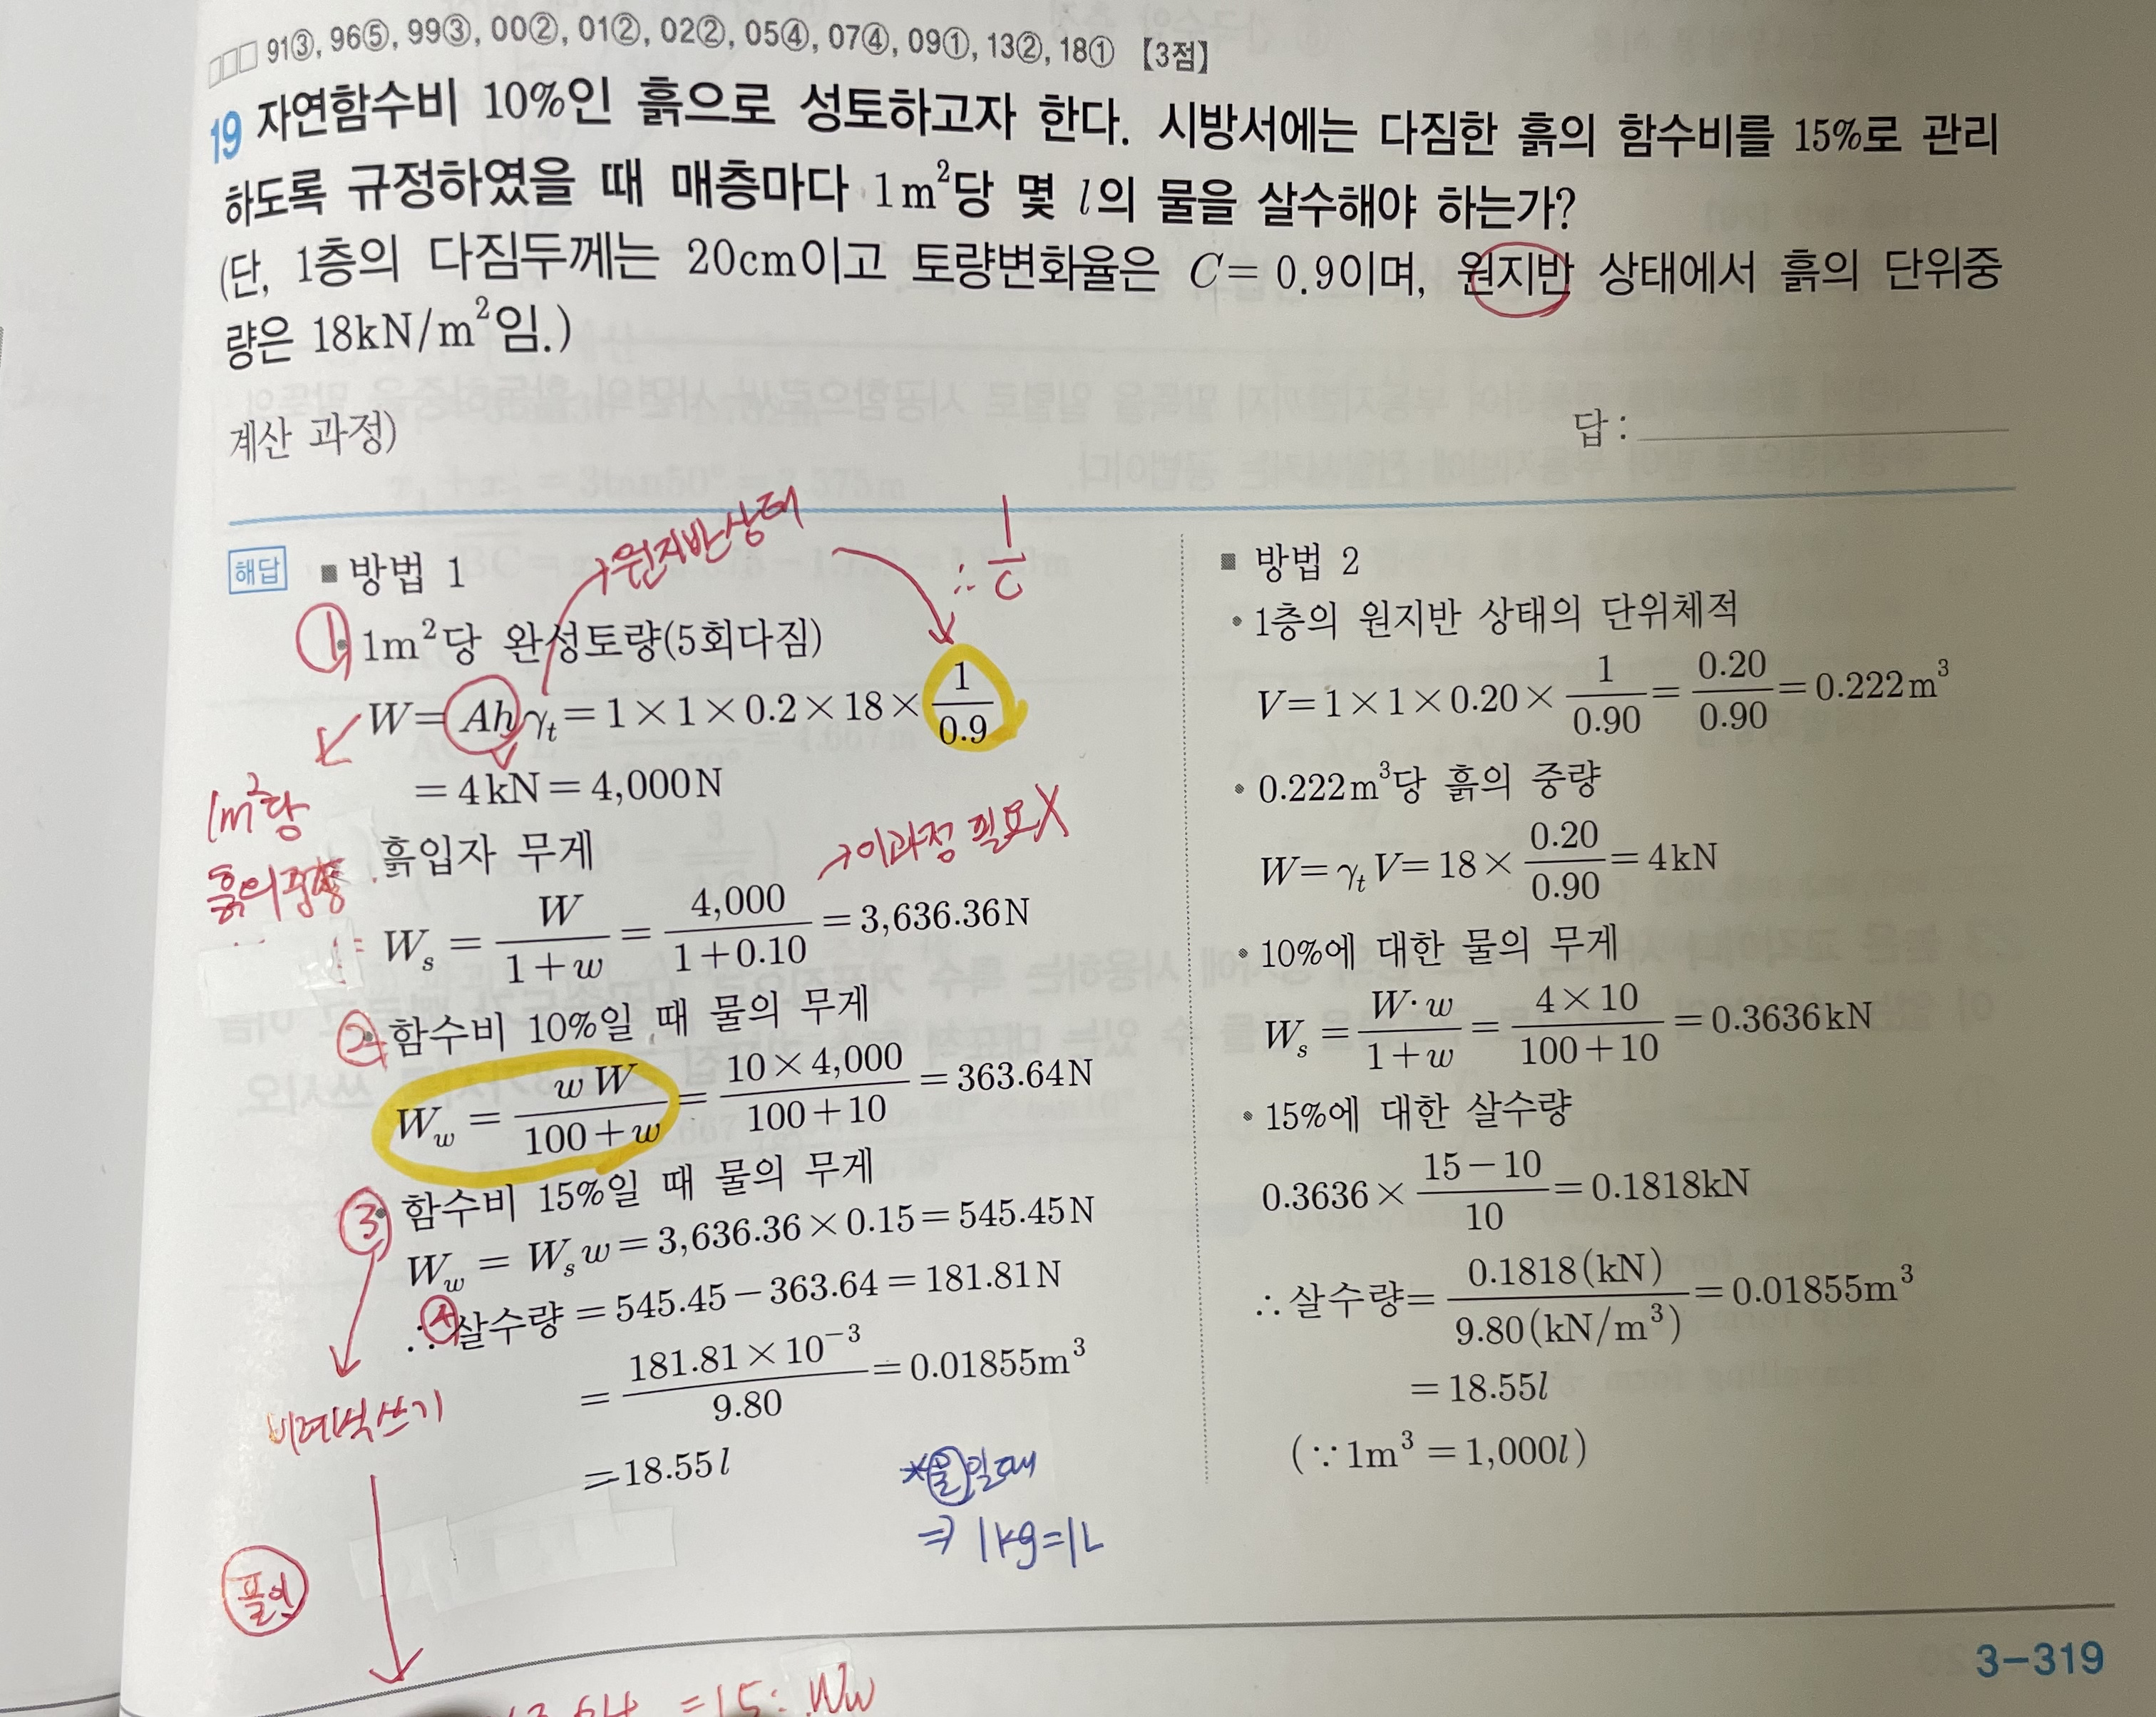 91③, 96⑤, 99③, 00②, 01②, 02②, 05④, 07④, 09①, 13②, 18① 【3점】
19 자연함수비 10%인 흙으로 성토하고자 한다. 시방서에는 다짐한 흙의 함수비를 15%로 관리
하도록 규정하였을 때 매층마다 1m²당 몇 l의 물을 살수해야 하는가?
(단, 1층의 다짐두께는 20cm이고 토량변화율은 C = 0.9이며, 원지반 상태에서 흙의 단위중
량은 18kN/m²임.)
계산 과정)
답 :
해답
■ 방법 1
→원지반상태
∴ 1/C
① 1m²당 완성토량(5회다짐)
W = Ahγt = 1×1×0.2×18× 1/0.9
= 4kN = 4,000N
1m²당
흙의중량
흙입자 무게
→이과정 필요X
Ws = W/(1+w) = 4,000/(1+0.10) = 3,636.36N
② 함수비 10%일 때 물의 무게
Ww = wW/(100+w) = (10×4,000)/(100+10) = 363.64N
③ 함수비 15%일 때 물의 무게
Ww = Ws w = 3,636.36×0.15 = 545.45N
∴ ④ 살수량 = 545.45 − 363.64 = 181.81N
= (181.81×10⁻³)/9.80 = 0.01855m³
비례식쓰기
= 18.55l
*물일때
⇒ 1kg=1L
풀이
=15: Ww
■ 방법 2
• 1층의 원지반 상태의 단위체적
V = 1×1×0.20× 1/0.90 = 0.20/0.90 = 0.222m³
• 0.222m³당 흙의 중량
W = γt V = 18× 0.20/0.90 = 4kN
• 10%에 대한 물의 무게
Ws = W·w/(1+w) = (4×10)/(100+10) = 0.3636kN
• 15%에 대한 살수량
0.3636× (15−10)/10 = 0.1818kN
∴ 살수량 = 0.1818(kN)/9.80(kN/m³) = 0.01855m³
= 18.55l
(∵ 1m³ = 1,000l)
3−319